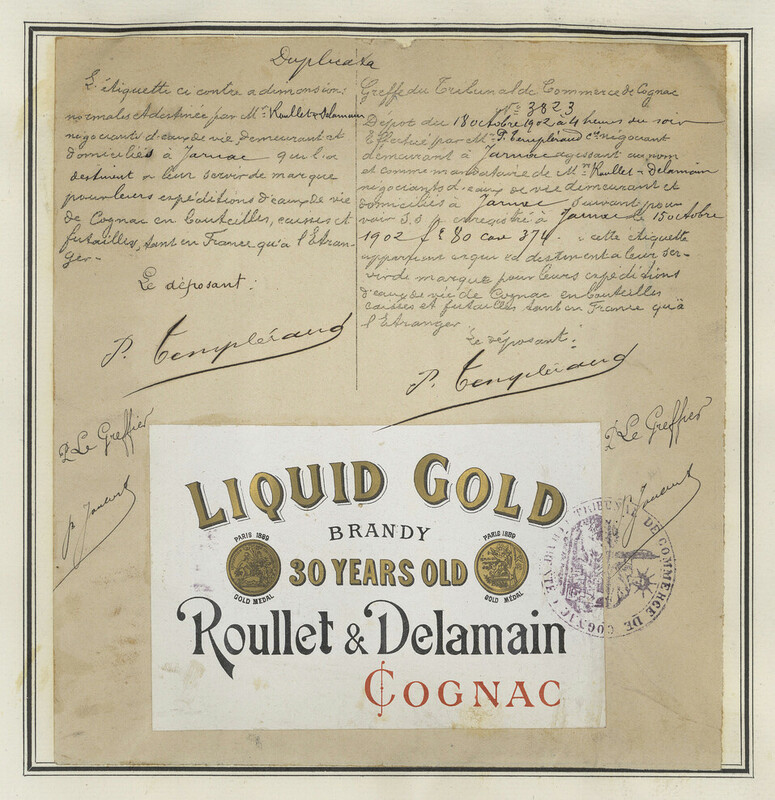 Duplicata
L'étiquette ci contre a dimensions
normales est destinée par Mrs Roullet & Delamain
négociants d'eaux de vie, demeurant et
domiciliés à Jarnac qui l'a
destinent a leur servir de marque
pour leurs expéditions d'eaux de vie
de Cognac en bouteilles, caisses et
futailles, tant en France qu'a l'Etran-
ger-
Le déposant:
P. Templéraud
Greffe du Tribunal de Commerce de Cognac
No 3823
Dépôt du 18 octobre 1902 à 4 heures du soir
Effectué par Mr P. Templéraud négociant
demeurant à Jarnac agissant au nom
et comme mandataire de Mrs Roullet & Delamain
négociants d'eaux de vie demeurant et
domiciliés à Jarnac, suivant pou-
voir S.S.P. enregistré à Jarnac le 15 octobre
1902 fo 80 case 374. cette étiquette
appartient et qu'ils destinent a leur ser-
vir de marque pour leurs expéditions
d'eaux de vie de Cognac en bouteilles
caisses et futailles tant en France qu'à
l'Etranger
Le déposant:
P. Templéraud
P Le Greffier
P Le Greffier
LIQUID GOLD
BRANDY
PARIS 1889
GOLD MEDAL
30 YEARS OLD
PARIS 1889
GOLD MÉDAL
Roullet & Delamain
COGNAC
TRIBUNAL DE COMMERCE DE COGNAC (CHARENTE)